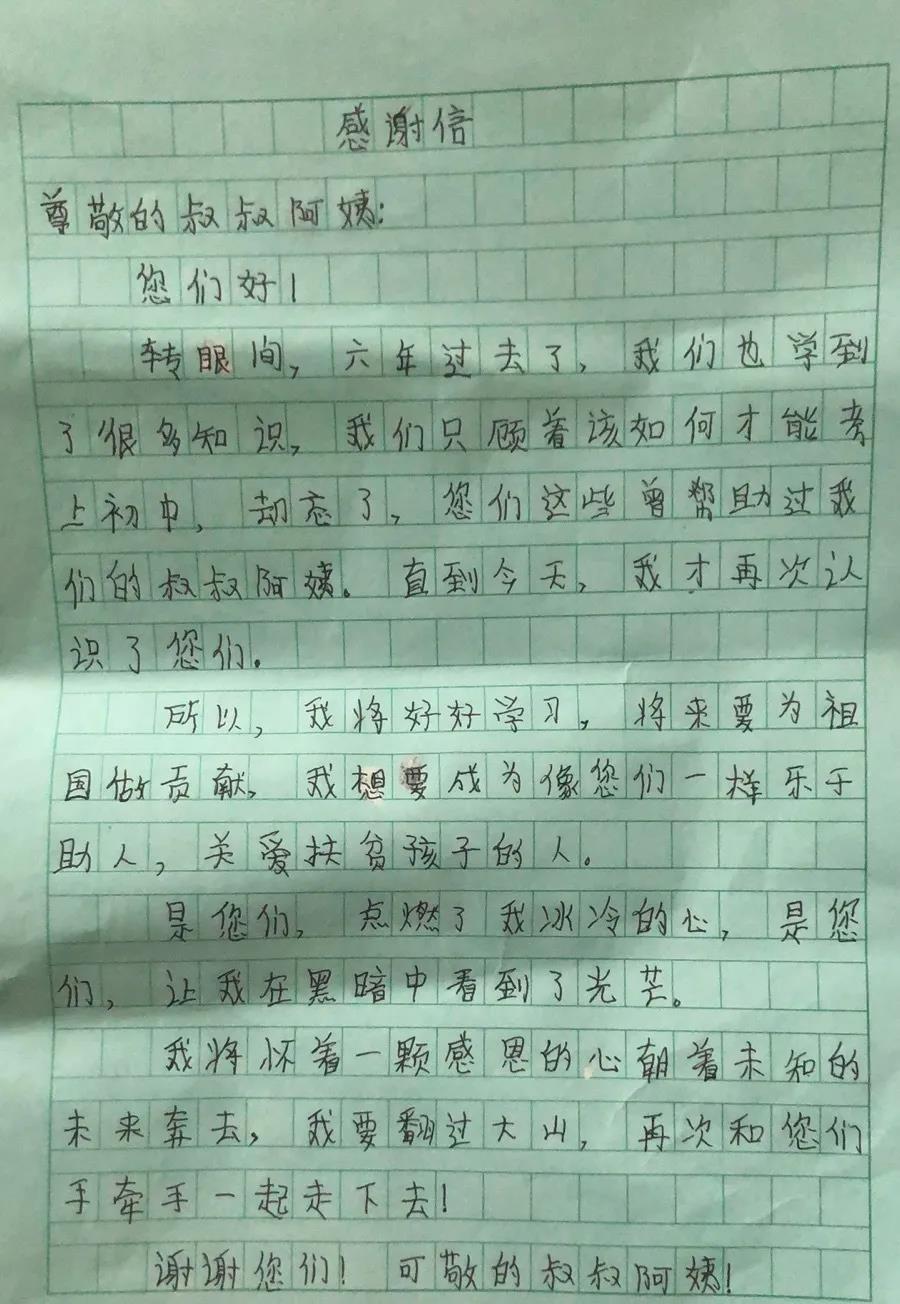 感谢信
尊敬的叔叔阿姨:
您们好!
转眼间,六年过去了,我们也学到
了很多知识,我们只顾着该如何才能考
上初中,却忘了,您们这些曾帮助过我
们的叔叔阿姨。直到今天,我才再次认
识了您们。
所以,我将好好学习,将来要为祖
国做贡献,我想要成为像您们一样乐于
助人,关爱扶贫孩子的人。
是您们,点燃了我冰冷的心,是您
们,让我在黑暗中看到了光芒。
我将怀着一颗感恩的心朝着未知的
未来奔去,我要翻过大山,再次和您们
手牵手一起走下去!
谢谢您们!可敬的叔叔阿姨!